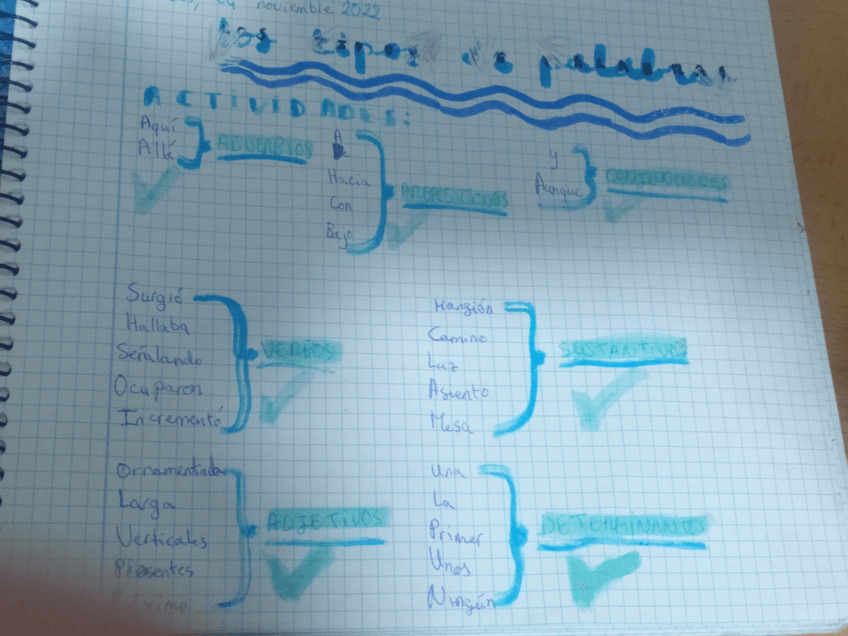 noviembre 2022
Los tipos de palabras
ACTIVIDADES:
Aquí
Allá
ADVERBIOS
A
Hacia
Con
Bajo
PREPOSICIONES
y
Aunque
Surgió
Hallaba
Señalando
Ocuparon
Incrementó
VERBOS
Mansión
Camino
Luz
Asiento
Mesa
SUSTANTIVOS
Ornamentada
Larga
Verticales
Presentes
Próximo
ADJETIVOS
Una
La
Primer
Unos
Ningún
DETERMINANTES